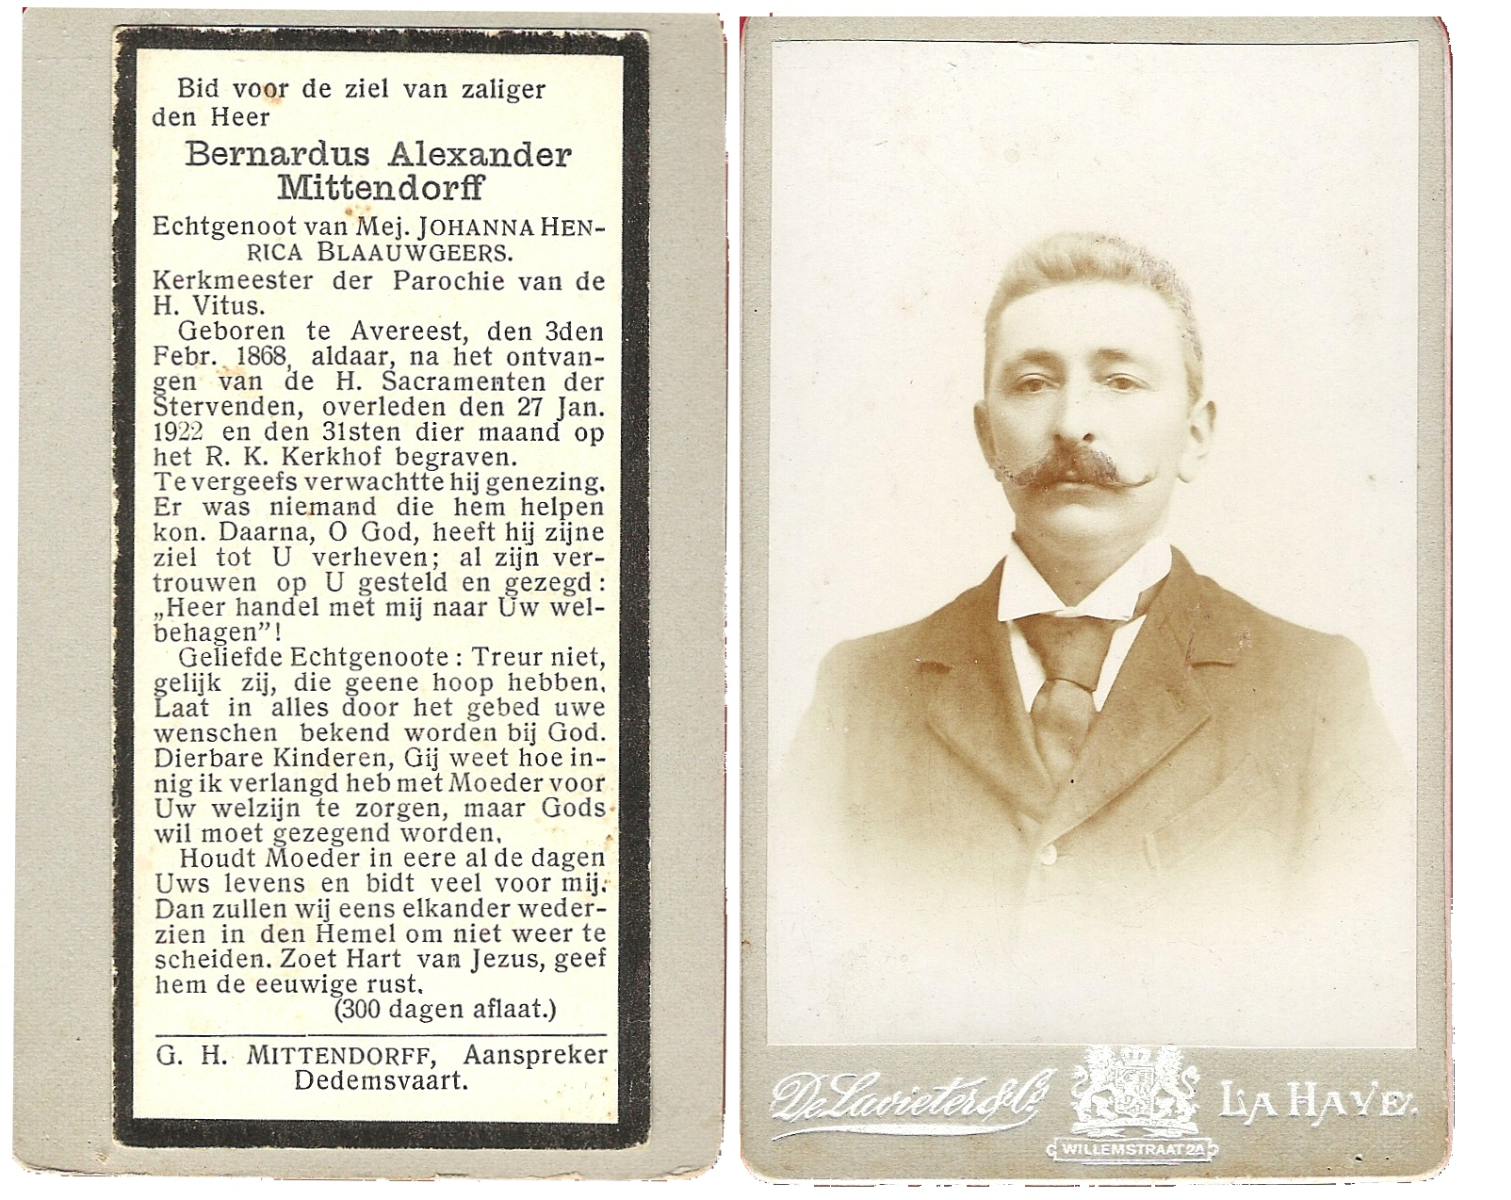 Bid voor de ziel van zaliger
den Heer
Bernardus Alexander
Mittendorff
Echtgenoot van Mej. JOHANNA HEN-
RICA BLAAUWGEERS.
Kerkmeester der Parochie van de
H. Vitus.
Geboren te Avereest, den 3den
Febr. 1868, aldaar, na het ontvan-
gen van de H. Sacramenten der
Stervenden, overleden den 27 Jan.
1922 en den 31sten dier maand op
het R. K. Kerkhof begraven.
Te vergeefs verwachtte hij genezing.
Er was niemand die hem helpen
kon. Daarna, O God, heeft hij zijne
ziel tot U verheven; al zijn ver-
trouwen op U gesteld en gezegd:
„Heer handel met mij naar Uw wel-
behagen”!
Geliefde Echtgenoote: Treur niet,
gelijk zij, die geene hoop hebben.
Laat in alles door het gebed uwe
wenschen bekend worden bij God.
Dierbare Kinderen, Gij weet hoe in-
nig ik verlangd heb met Moeder voor
Uw welzijn te zorgen, maar Gods
wil moet gezegend worden.
Houdt Moeder in eere al de dagen
Uws levens en bidt veel voor mij.
Dan zullen wij eens elkander weder-
zien in den Hemel om niet weer te
scheiden. Zoet Hart van Jezus, geef
hem de eeuwige rust.
(300 dagen aflaat.)
G. H. MITTENDORFF, Aanspreker
Dedemsvaart.
De Lavieter & Co. LA HAYE.
WILLEMSTRAAT 2A